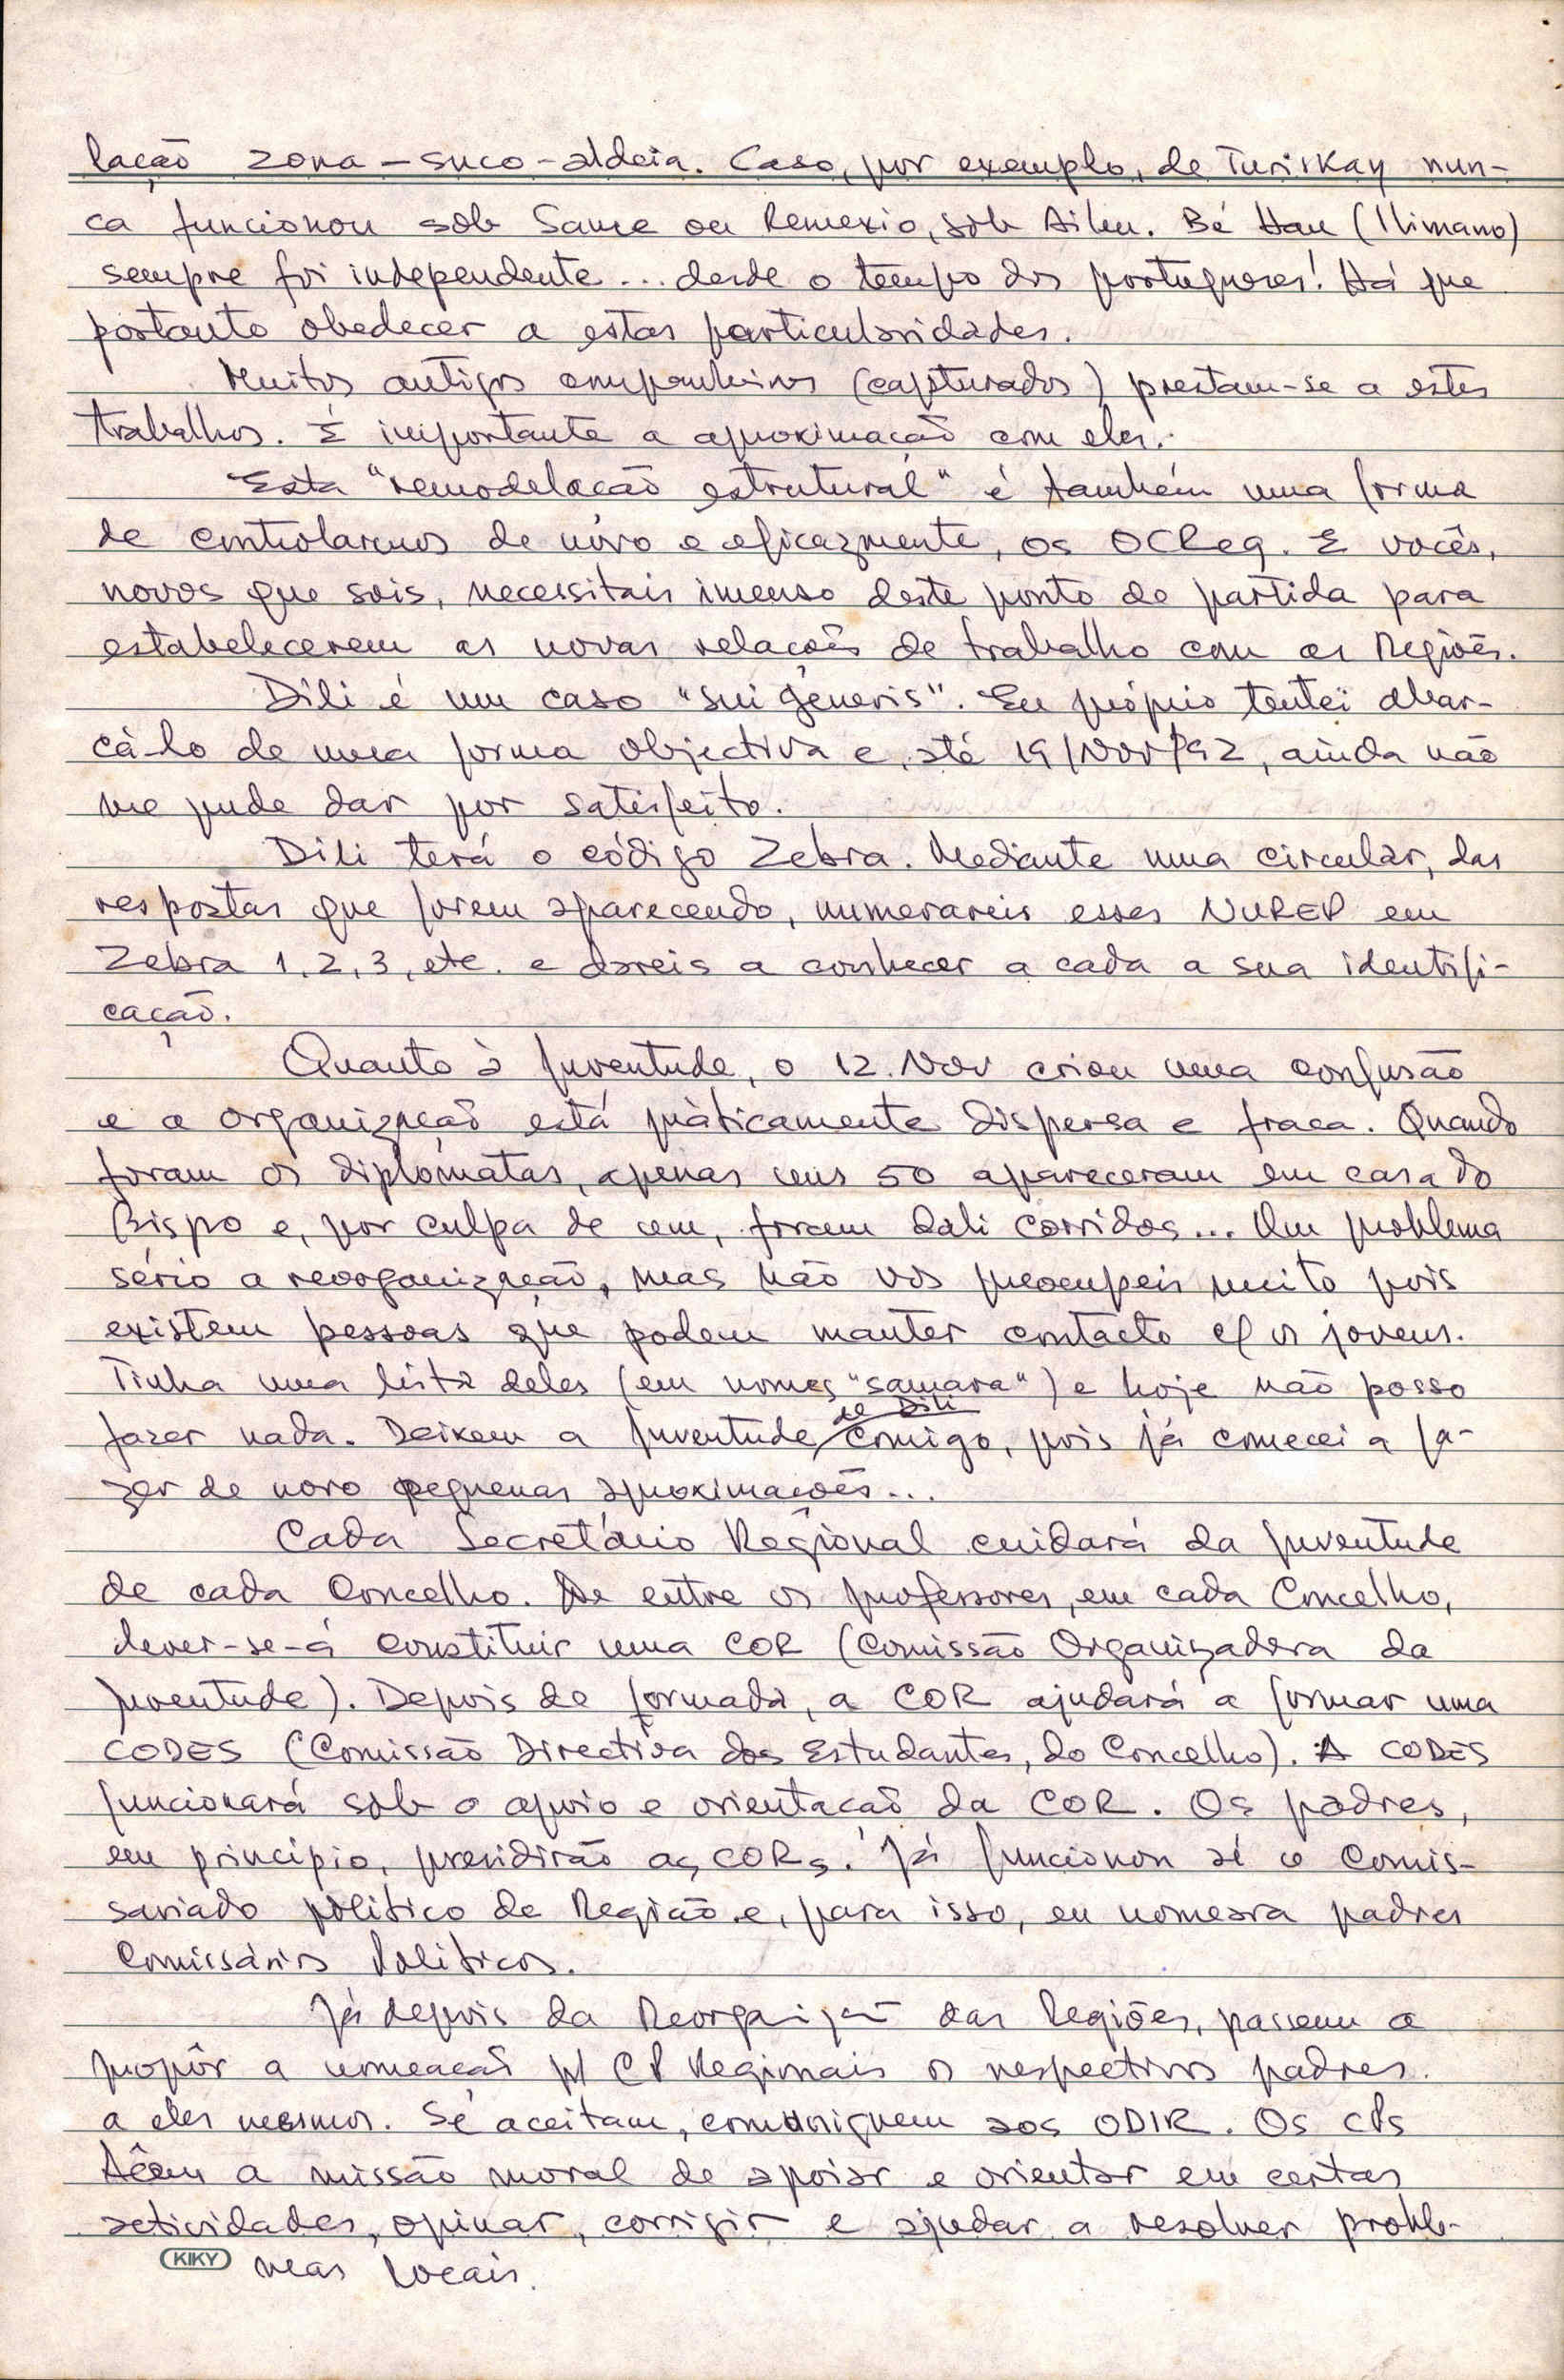 lação zona-suco-aldeia. Caso, por exemplo, de Turiskay nun-
ca funcionou sob Same ou Remexio, sob Aileu. Bé Hau (Ilimano)
sempre foi independente... desde o tempo dos portugueses! Há que
portanto obedecer a estas particularidades.
Muitos antigos companheiros (capturados) prestam-se a estes
trabalhos. É importante a aproximação com eles.
Esta "remodelação estrutural" é também uma forma
de controlarmos de novo e eficazmente, os OCReg. E vocês,
novos que sois, necessitais imenso deste ponto de partida para
estabelecerem as novas relações de trabalho com as Regiões.
Dili é um caso "sui géneris". Eu próprio tentei abar-
cá-lo de uma forma objectiva e, até 19/Nov/92, ainda não
me pude dar por satisfeito.
Dili terá o código Zebra. Mediante uma circular, das
respostas que forem aparecendo, numerareis esses NUREP em
Zebra 1, 2, 3, etc. e dareis a conhecer a cada a sua identifi-
cação.
Quanto à Juventude, o 12.Nov criou uma confusão
e a organização está pràticamente dispersa e fraca. Quando
foram os diplomatas, apenas uns 50 apareceram em casa do
Bispo e, por culpa de um, foram dali corridos... Um problema
sério a reorganização, mas não vos preocupeis muito pois
existem pessoas que podem manter contacto c/ os jovens.
Tinha uma lista deles (em nomes "samara") e hoje não posso
fazer nada. Deixem a Juventude de Dili comigo, pois já comecei a fa-
zer de novo pequenas aproximações...
Cada Secretário Regional cuidará da Juventude
de cada Concelho. De entre os professores, em cada Concelho,
dever-se-á constituir uma COR (Comissão Organizadora da
Juventude). Depois de formada, a COR ajudará a formar uma
CODES (Comissão Directiva dos Estudantes, do Concelho). A CODES
funcionará sob o apoio e orientação da COR. Os padres,
em princípio, presidirão as CORs. Já funcionou só o Comis-
sariado político de Região e, para isso, eu nomeara padres
Comissários Políticos.
Já depois da Reorganização das Regiões, passem a
propôr a nomeação p/ CP Regionais os respectivos padres.
a eles mesmos. Se aceitam, comuniquem aos ODIR. Os CPs
têem a missão moral de apoiar e orientar em certas
actividades, opinar, corrigir e ajudar a resolver proble-
KIKY mas locais.